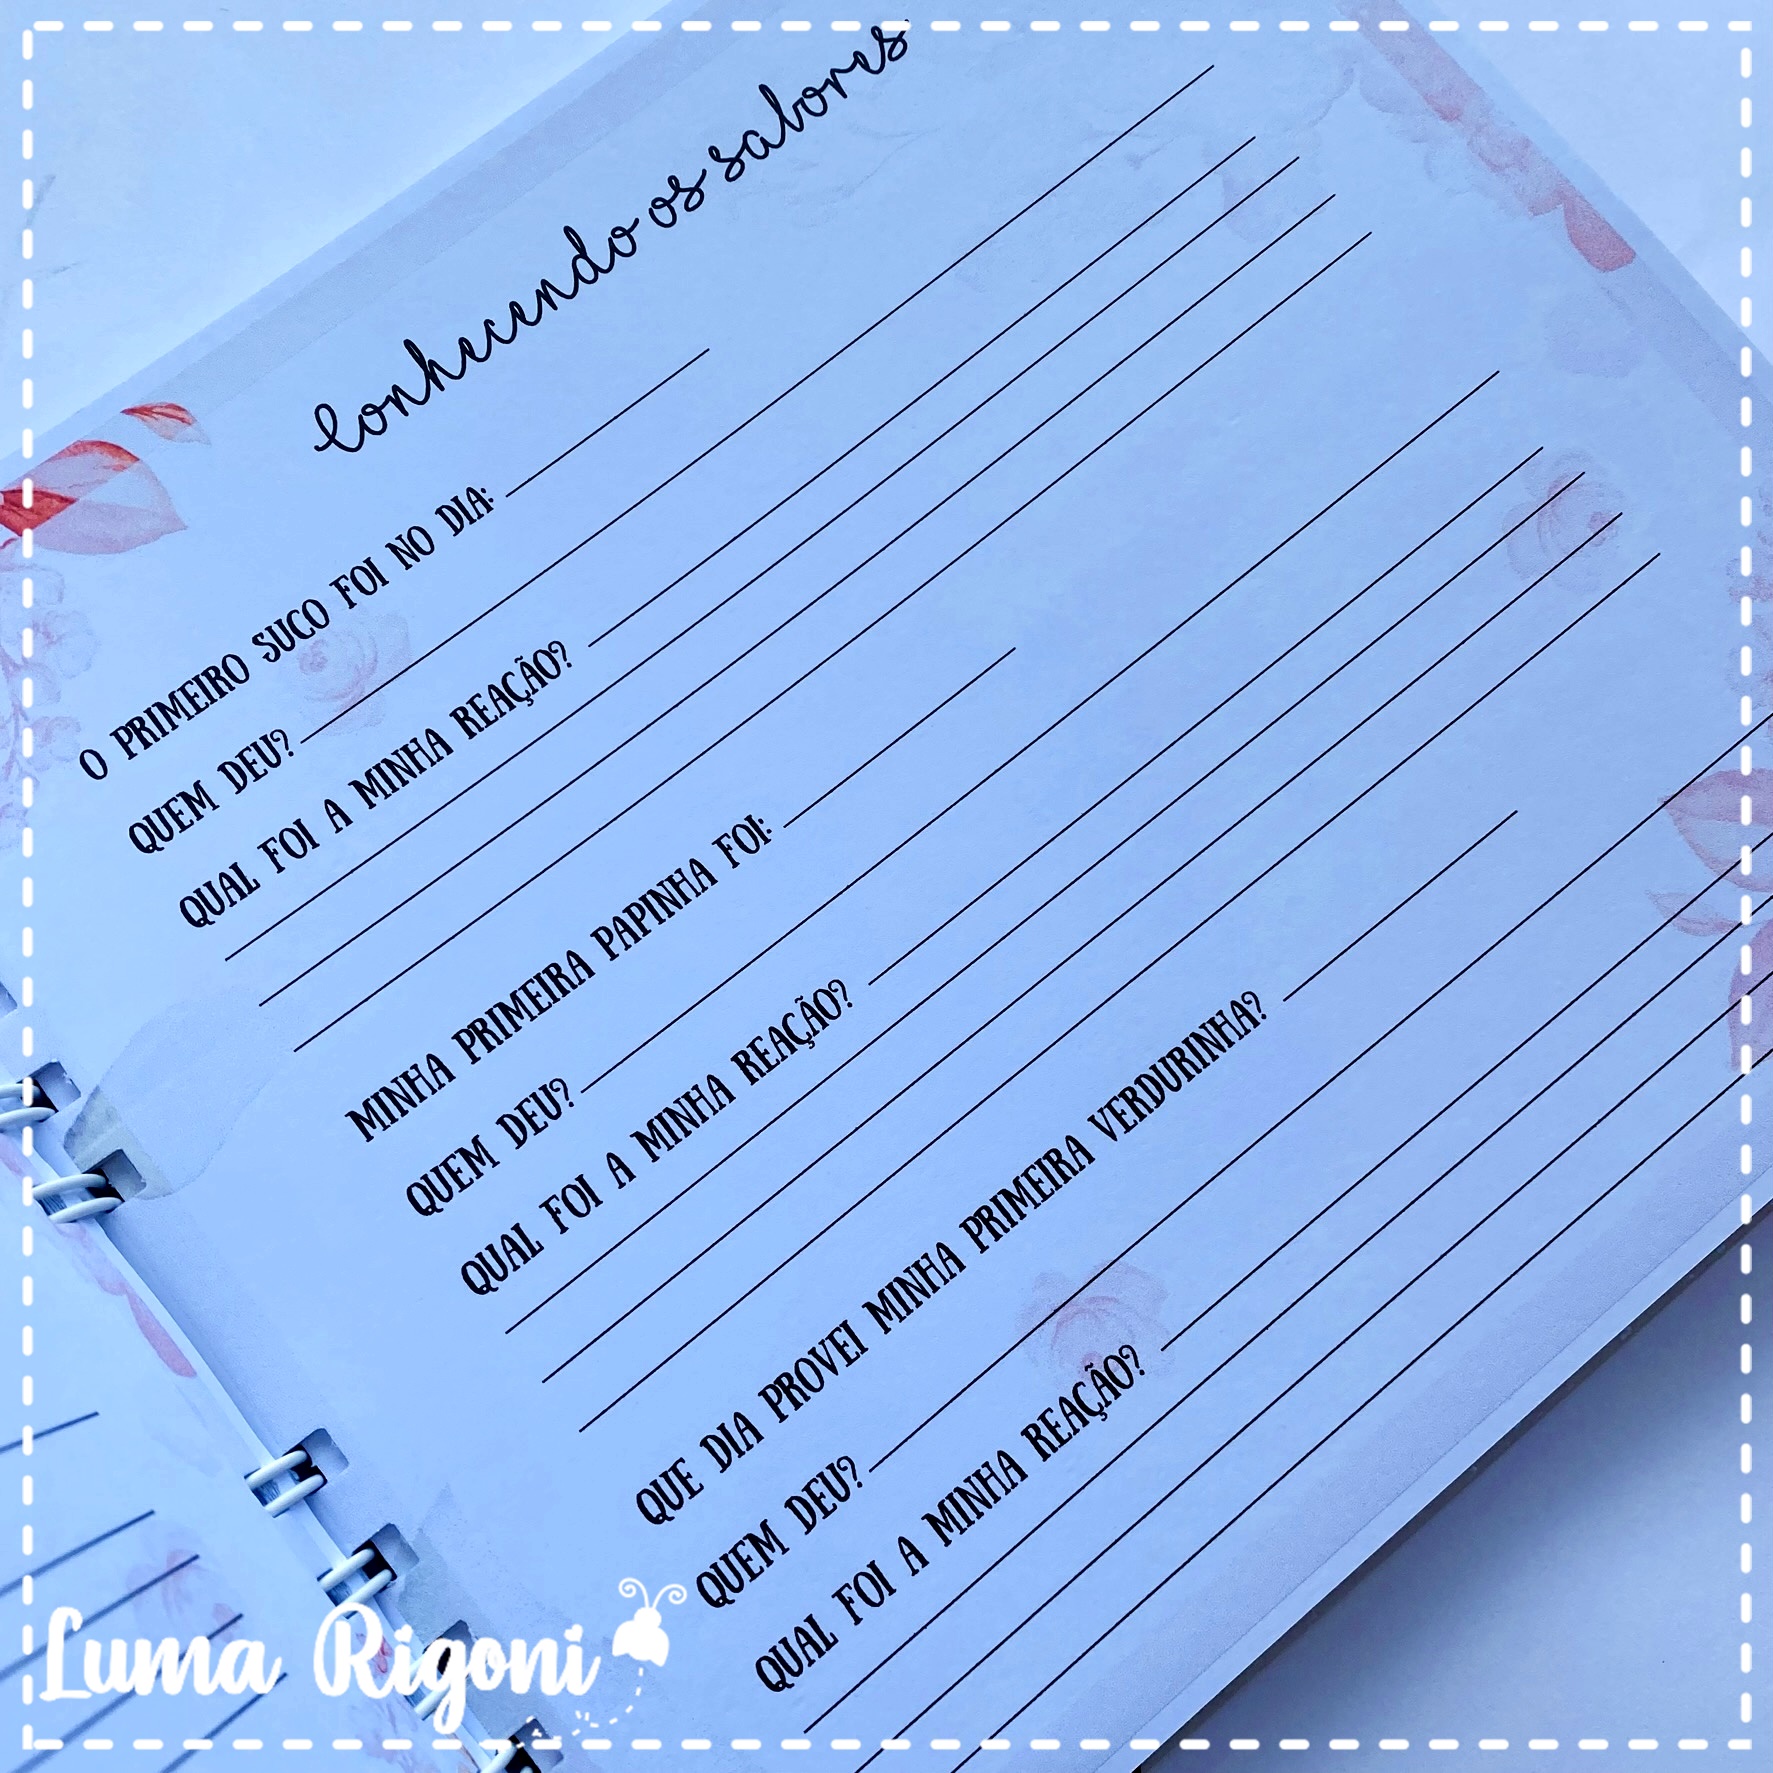 Conhecendo os sabores
O PRIMEIRO SUCO FOI NO DIA:
QUEM DEU?
QUAL FOI A MINHA REAÇÃO?
MINHA PRIMEIRA PAPINHA FOI:
QUEM DEU?
QUAL FOI A MINHA REAÇÃO?
QUE DIA PROVEI MINHA PRIMEIRA VERDURINHA?
QUEM DEU?
QUAL FOI A MINHA REAÇÃO?
Luma Rigoni